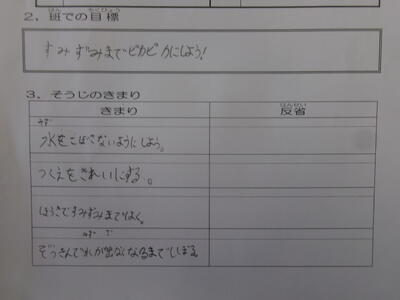 はん もくひょう
2. 班での目標
すみずみまでピカピカにしよう!
3. そうじのきまり
きまり
はんせい
反省
みず
水をこぼさないようにしよう。
つくえをきれいにする。
ほうきですみずみまではく。
みず で
ぞうきんで水が出なくなるまでしぼる。